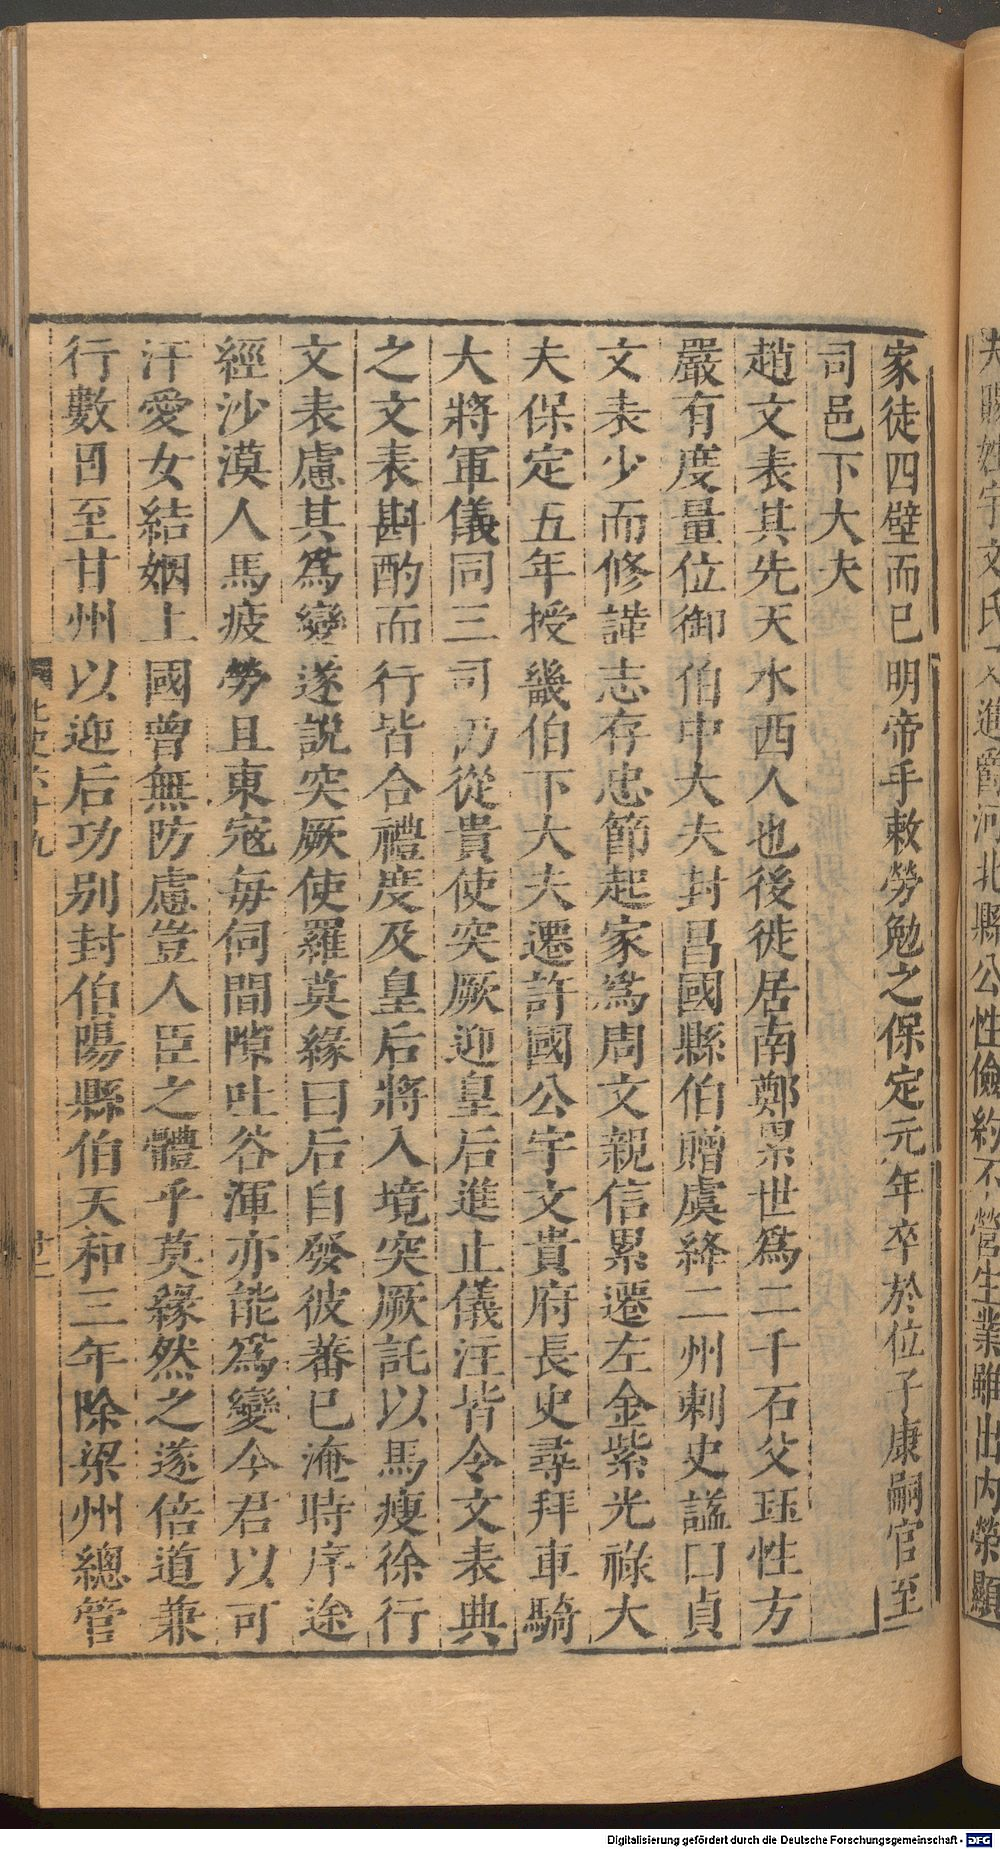 夫賜姓宇文氏又進爵河北縣公性儉約不營生業雖出內榮顯
家徒四壁而已明帝手敕勞勉之保定元年卒於位子康嗣官至
司邑下大夫
趙文表其先天水西人也後徙居南鄭累世爲二千石父珏性方
嚴有度量位御伯中大夫封昌國縣伯贈虞絳二州刺史謚曰貞
文表少而修謹志存忠節起家爲周文親信累遷左金紫光祿大
夫保定五年授畿伯下大夫遷許國公宇文貴府長史尋拜車騎
大將軍儀同三司仍從貴使突厥迎皇后進止儀注皆令文表典
之文表斟酌而行皆合禮度及皇后將入境突厥託以馬瘦徐行
文表慮其爲變遂說突厥使羅莫緣曰后自發彼蕃已淹時序途
經沙漠人馬疲勞且東寇每伺間隙吐谷渾亦能爲變今君以可
汗愛女結姻上國曾無防慮豈人臣之體乎莫緣然之遂倍道兼
行數日至甘州以迎后功別封伯陽縣伯天和三年除梁州總管
北史六十九
廿二
Digitalisierung gefördert durch die Deutsche Forschungsgemeinschaft - DFG